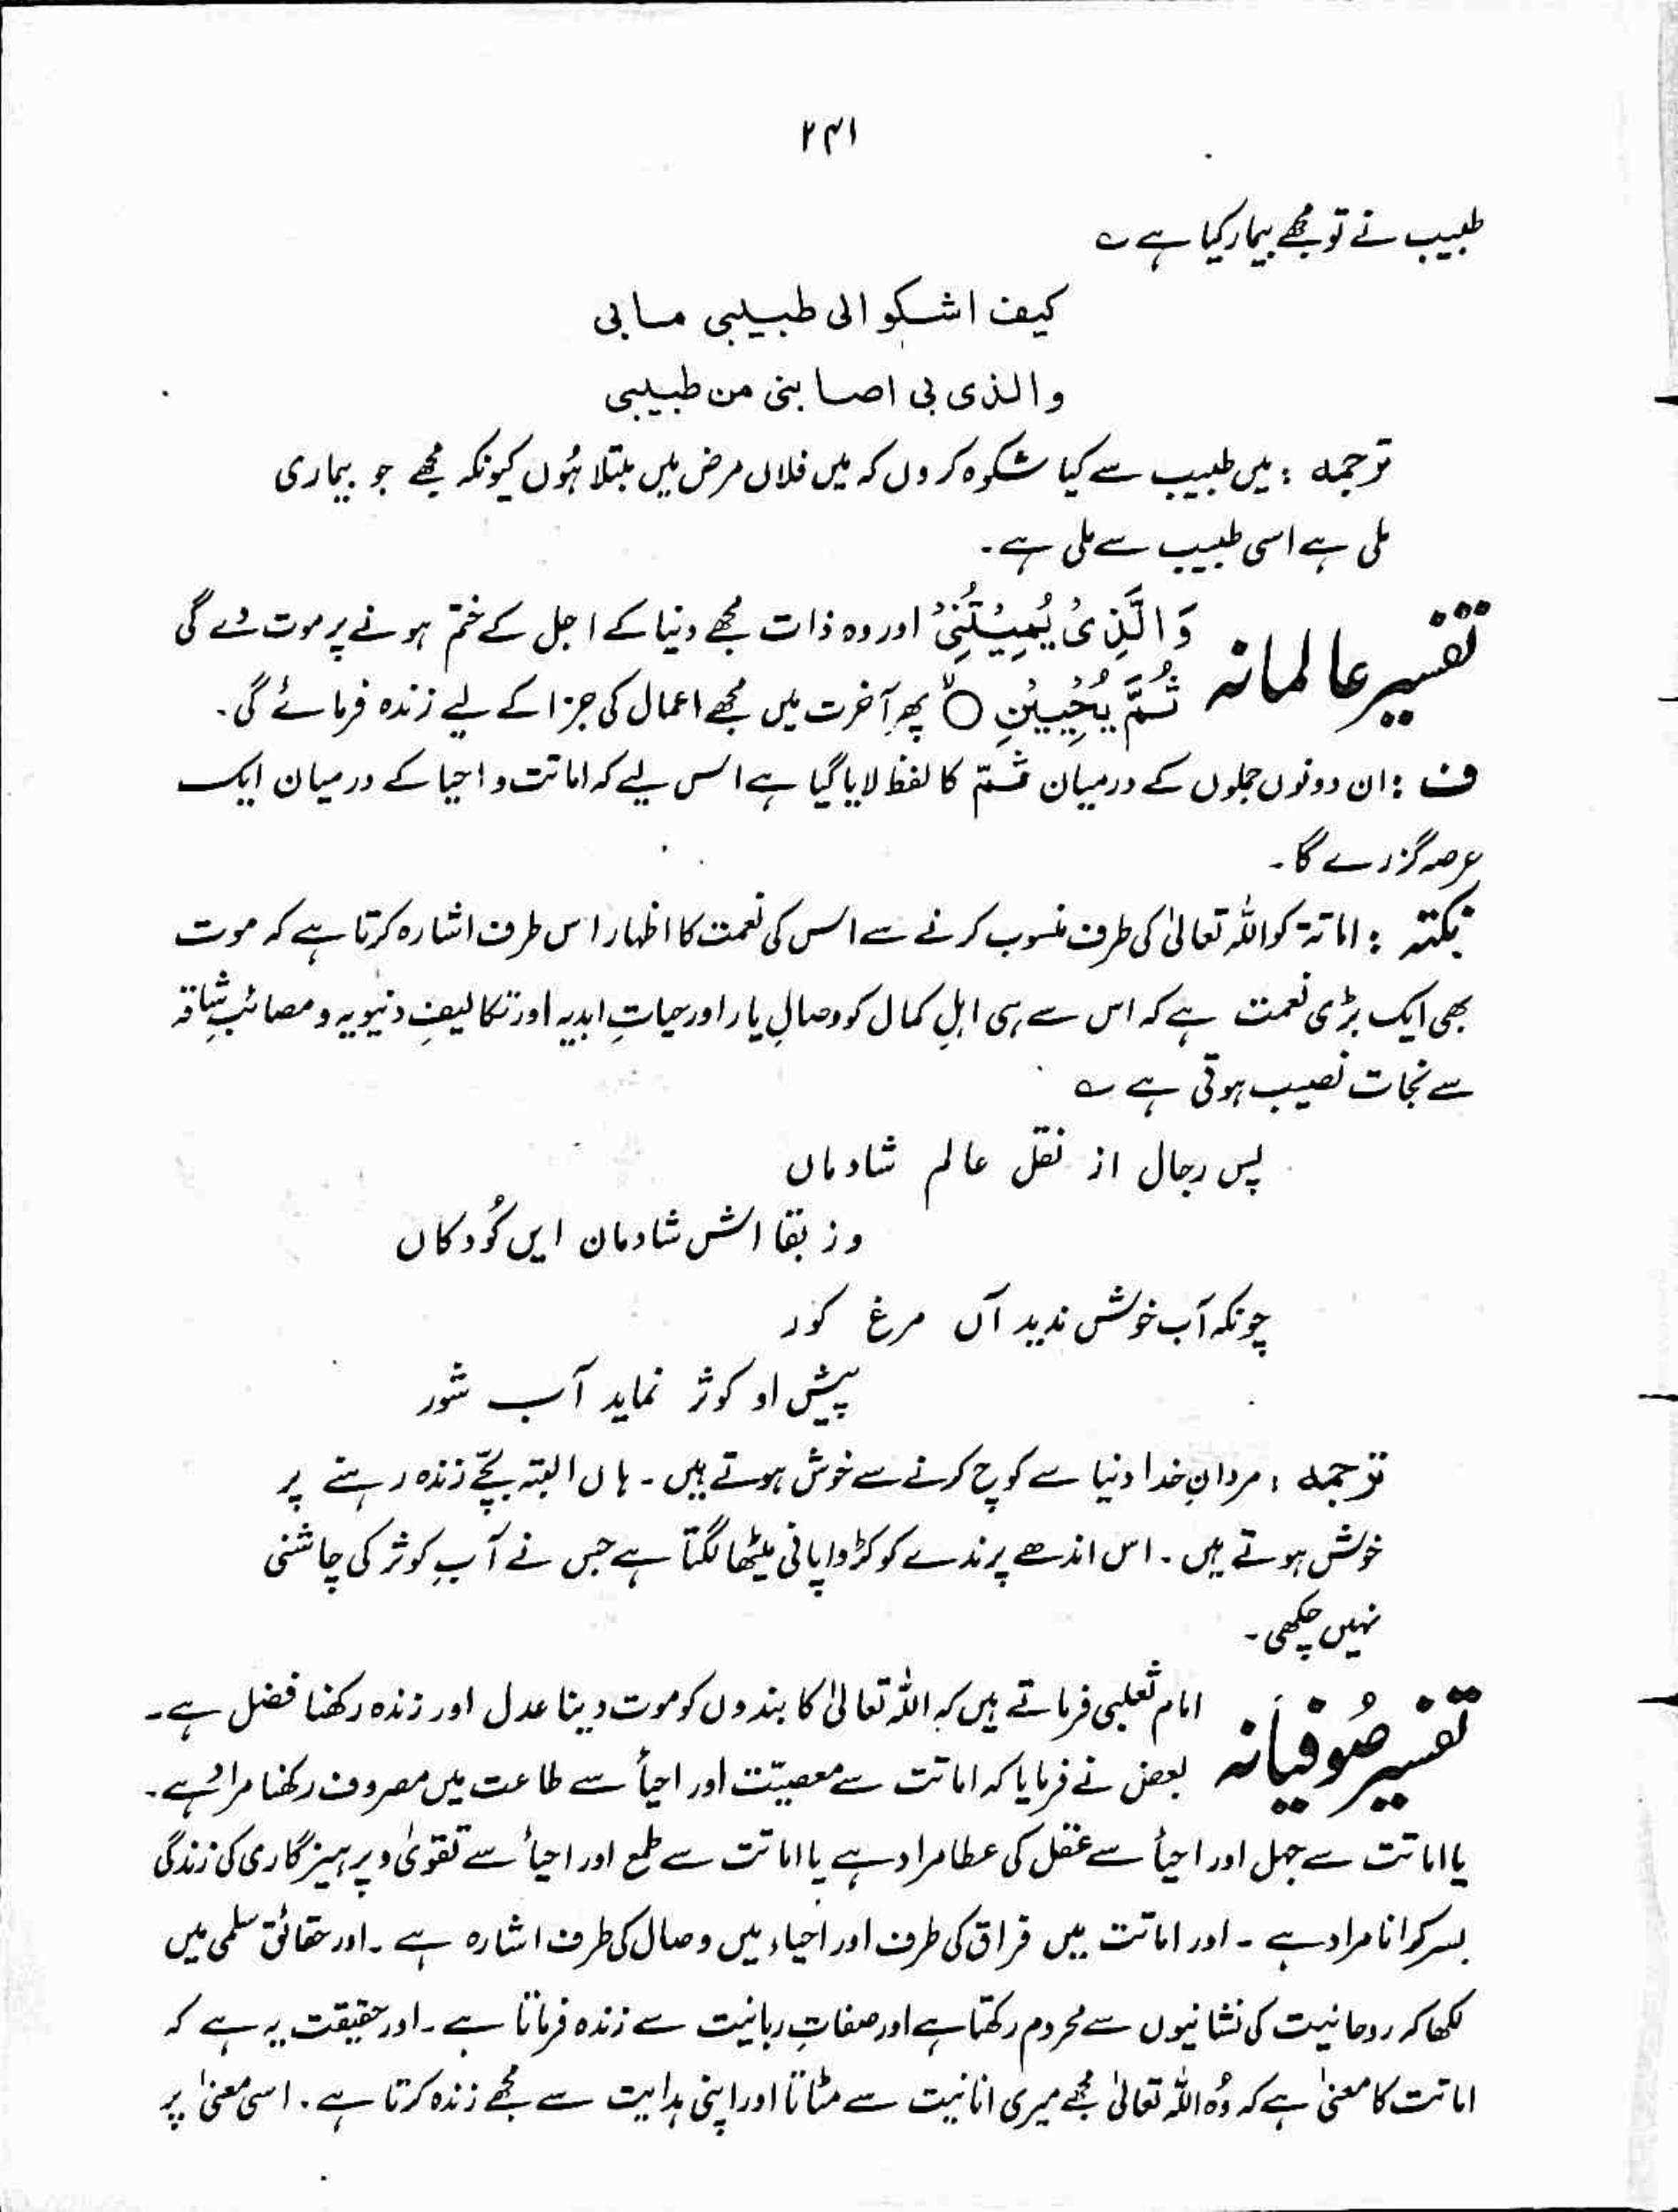 ۲۴۱
طبیب نے تو مجھے بیمار کیا ہے ؎
کیف اشکو الی طبیبی مابی
والذی بی اصابنی من طبیبی
ترجمہ : میں طبیب سے کیا شکوہ کروں کہ میں فلاں مرض میں مبتلا ہُوں کیونکہ مجھے جو بیماری
ملی ہے اسی طبیب سے ملی ہے۔
تفسیر عالمانہ وَالَّذِیْ یُمِیْتُنِیْ اور وہ ذات مجھے دنیا کے اجل کے ختم ہونے پر موت دے گی
ثُمَّ یُحْیِیْنِ ○ پھر آخرت میں مجھے اعمال کی جزا کے لیے زندہ فرمائے گی۔
ف : ان دونوں جملوں کے درمیان ثمّ کا لفظ لایا گیا ہے اس لیے کہ اماتت و احیا کے درمیان ایک
عرصہ گزرے گا۔
نکتہ : اماتۃ کو اللہ تعالیٰ کی طرف منسوب کرنے سے اس کی نعمت کا اظہار اس طرف اشارہ کرتا ہے کہ موت
بھی ایک بڑی نعمت ہے کہ اس سے ہی اہلِ کمال کو وصالِ یار اور حیاتِ ابدیہ اور تکالیفِ دنیویہ و مصائبِ شاقہ
سے نجات نصیب ہوتی ہے ؎
پس رجال از نقل عالم شادماں
وز بقااش شادمان ایں کُودکاں
چونکہ آب خوش ندید آں مرغ کور
پیش او کوثر نماید آب شور
ترجمہ : مردانِ خدا دنیا سے کوچ کرنے سے خوش ہوتے ہیں۔ ہاں البتہ بچّے زندہ رہنے پر
خوش ہوتے ہیں۔ اس اندھے پرندے کو کڑوا پانی میٹھا لگتا ہے جس نے آبِ کوثر کی چاشنی
نہیں چکھی۔
تفسیر صُوفیانہ امام ثعلبی فرماتے ہیں کہ اللہ تعالیٰ کا بندوں کو موت دینا عدل اور زندہ رکھنا فضل ہے۔
بعض نے فرمایا کہ اماتت سے معصیّت اور احیأ سے طاعت میں مصروف رکھنا مراد ہے۔
یا اماتت سے جہل اور احیأ سے عقل کی عطا مراد ہے یا اماتت سے طمع اور احیأ سے تقویٰ و پرہیزگاری کی زندگی
بسر کرانا مراد ہے ۔ اور اماتت میں فراق کی طرف اور احیاء میں وصال کی طرف اشارہ ہے ۔ اور حقائق سلمی میں
لکھا کہ روحانیت کی نشانیوں سے محروم رکھتا ہے اور صفاتِ ربانیت سے زندہ فرماتا ہے۔ اور حقیقت یہ ہے کہ
اماتت کا معنیٰ ہے کہ وُہ اللہ تعالیٰ مجھے میری انانیت سے مٹاتا اور اپنی ہدایت سے مجھے زندہ کرتا ہے۔ اسی معنیٰ پر